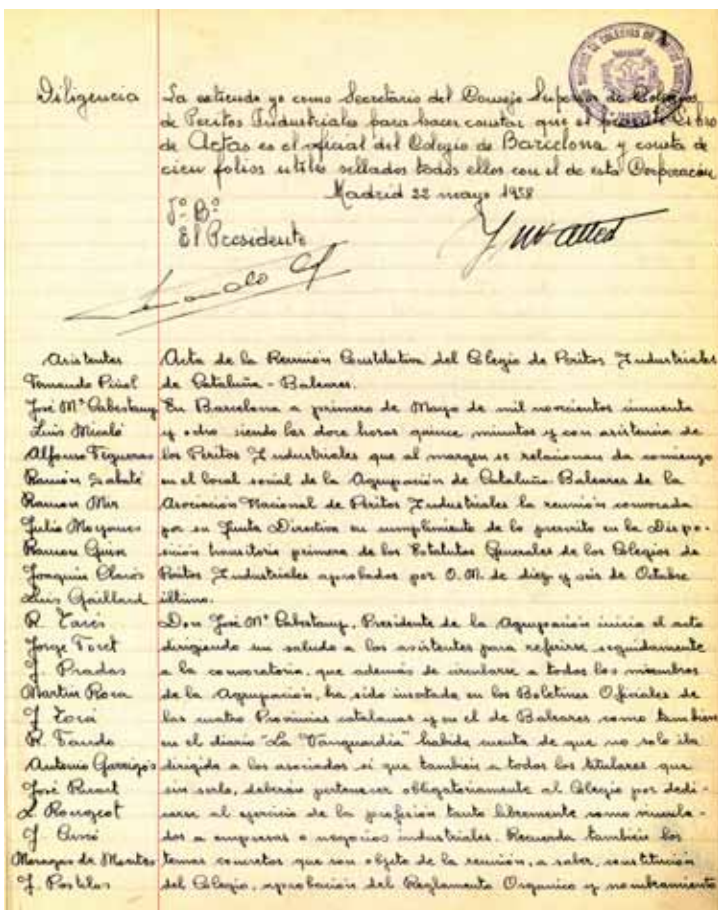 Diligencia
La extiendo yo como Secretario del Consejo Superior de Colegios
de Peritos Industriales para hacer constar que el presente Libro
de Actas es el oficial del Colegio de Barcelona y consta de
cien folios útiles sellados todos ellos con el de esta Corporación
Madrid 22 mayo 1958
Vº Bº
El Presidente
Asistentes
Fernando Piñol
José Mª Cabestany
Luis Micaló
Alfonso Figueras
Ramón Sabaté
Ramon Mir
Julio Moyones
Ramon Guix
Joaquin Clarós
Luis Gaillard
R. Tarés
Jorge Toret
J. Pradas
Martin Roca
J.
R. Tando
Antonio Garrigós
José Ricart
L. Rougeot
J. Cusó
Meneses de Montes
J. Postilos
Acta de la Reunión Constitutiva del Colegio de Peritos Industriales
de Cataluña - Baleares.
En Barcelona a primero de Mayo de mil novecientos cincuenta
y ocho siendo las doce horas quince minutos y con asistencia de
los Peritos Industriales que al margen se relacionan da comienzo
en el local social de la Agrupación de Cataluña-Baleares de la
Asociación Nacional de Peritos Industriales la reunión convocada
por su Junta Directiva en cumplimiento de lo prescrito en la Dispo-
sición transitoria primera de los Estatutos Generales de los Colegios de
Peritos Industriales aprobados por O.M. de diez y seis de Octubre
último.
Don José Mª Cabestany, Presidente de la Agrupación inicia el acto
dirigiendo un saludo a los asistentes para referirse seguidamente
a la convocatoria, que además de circularse a todos los miembros
de la Agrupación, ha sido insertada en los Boletines Oficiales de
las cuatro Provincias catalanas y en el de Baleares como tambien
en el diario "La Vanguardia" habida cuenta de que no solo iba
dirigida a los asociados si que tambien a todos los titulares que
sin serlo, deberán pertenecer obligatoriamente al Colegio por dedi-
carse al ejercicio de la profesión tanto libremente como vincula-
dos a empresas o negocios industriales. Recuerda tambien los
temas concretos que son objeto de la reunión, a saber, constitución
del Colegio, aprobación del Reglamento Organico y nombramiento